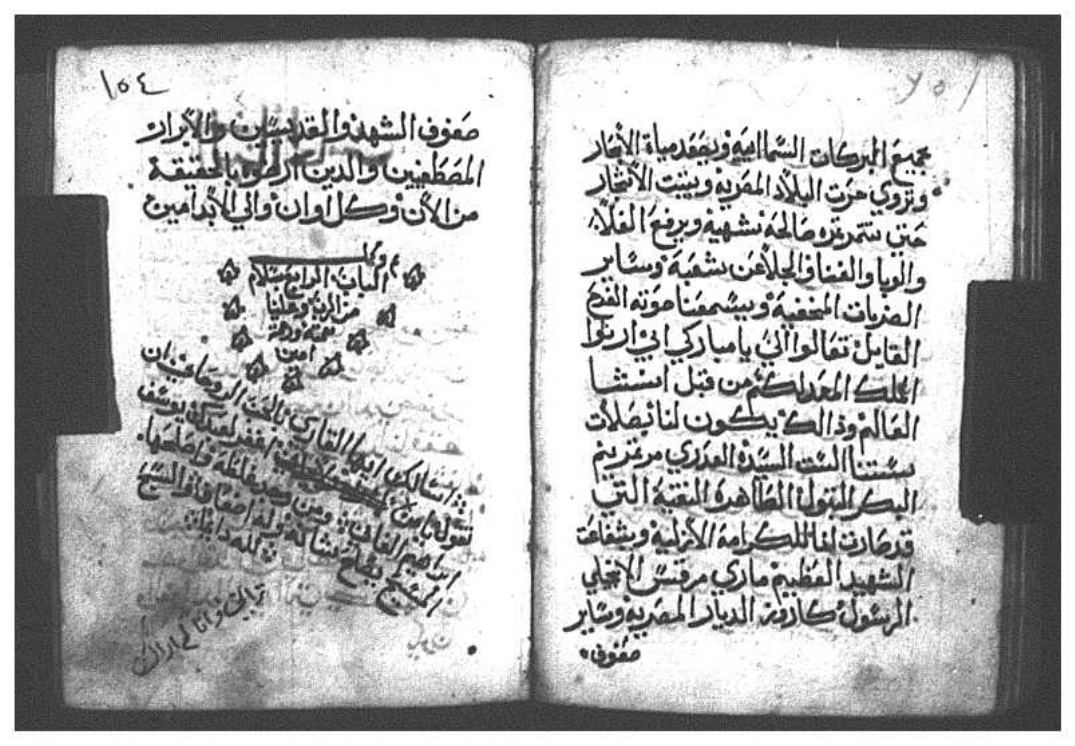 جميع البركات السماايه ويصعد مياة الانهار
وتروي حرت البلاد المصريه وينبت الاشجار
حتي تتمر تمره صالحه شهية ويرفع الغلاء
والوبا والفنا والجلا عن شعبه وساير
الضربات المخفية ويسمعنا صوته الفرح
القايل تعالوا الي يا مباركي ابي ارثوا
الملك المعد لكم من قبل انشا
العالم وذالك يكون لنا بصلات
ستنا الست السيدة العدري مرتمريم
البكر البتول الطاهره النقية التي
قد صارت لنا للكرامة الأزلية وبشفاعت
الشهيد العظيم ماري مرقس الانجيلي
الرسول كاروز الديار المصريه وساير
صفوف
١٥٤
صفوف الشهدا والقديسين والأبرار
المصطفيين والدين ارضوه بالحقيقة
من الأن وكل اوان والي الأبد امين
وكمل
الباب الرابع بسلام
من الرب وعلينا
امين
اسالك ايها القاري بالحب الروحاني ان
تقول اغفر لعبدك يوسف
ابراهيم ومن
المسيح